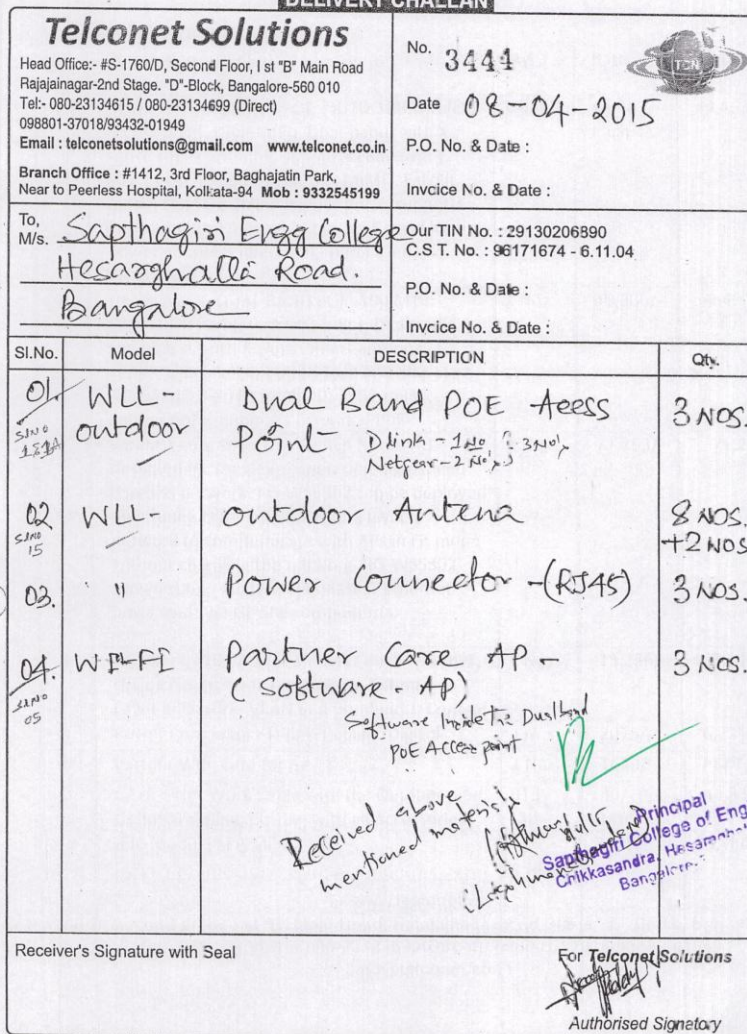 DELIVERY CHALLAN
Telconet Solutions
Head Office:- #S-1760/D, Second Floor, I st "B" Main Road
Rajajainagar-2nd Stage. "D"-Block, Bangalore-560 010
Tel:- 080-23134615 / 080-23134699 (Direct)
098801-37018/93432-01949
Email : telconetsolutions@gmail.com www.telconet.co.in
Branch Office : #1412, 3rd Floor, Baghajatin Park,
Near to Peerless Hospital, Kolkata-94 Mob : 9332545199
No. 3444
Date 08-04-2015
P.O. No. & Date :
Invcice No. & Date :
To,
M/s. Sapthagiri Engg College
Hesarghalla Road.
Bangalore
Our TIN No. : 29130206890
C.S.T. No. : 96171674 - 6.11.04
P.O. No. & Date :
Invcice No. & Date :
Sl.No. Model DESCRIPTION Qty.
01 WLL- Dual Band POE Acess 3 NOS.
outdoor Point Dlink - 1 No 3 Nos
Netgear - 2 Nos
Sl No
02 WLL- outdoor Antena 8 NOS.
Sl No
15
+2 NOS
03. " Power Connector -(RJ45) 3 NOS.
04. WI-FI Partner Care - AP - 3 NOS.
(Software - AP)
Sl No
05
Software Inside The Dual Band
POE Access point
Received above
mentioned materials
Principal
Sapthagiri College of Eng
Chikkasandra, Hesaraghat
Bangalore
Receiver's Signature with Seal
For Telconet Solutions
Authorised Signatory